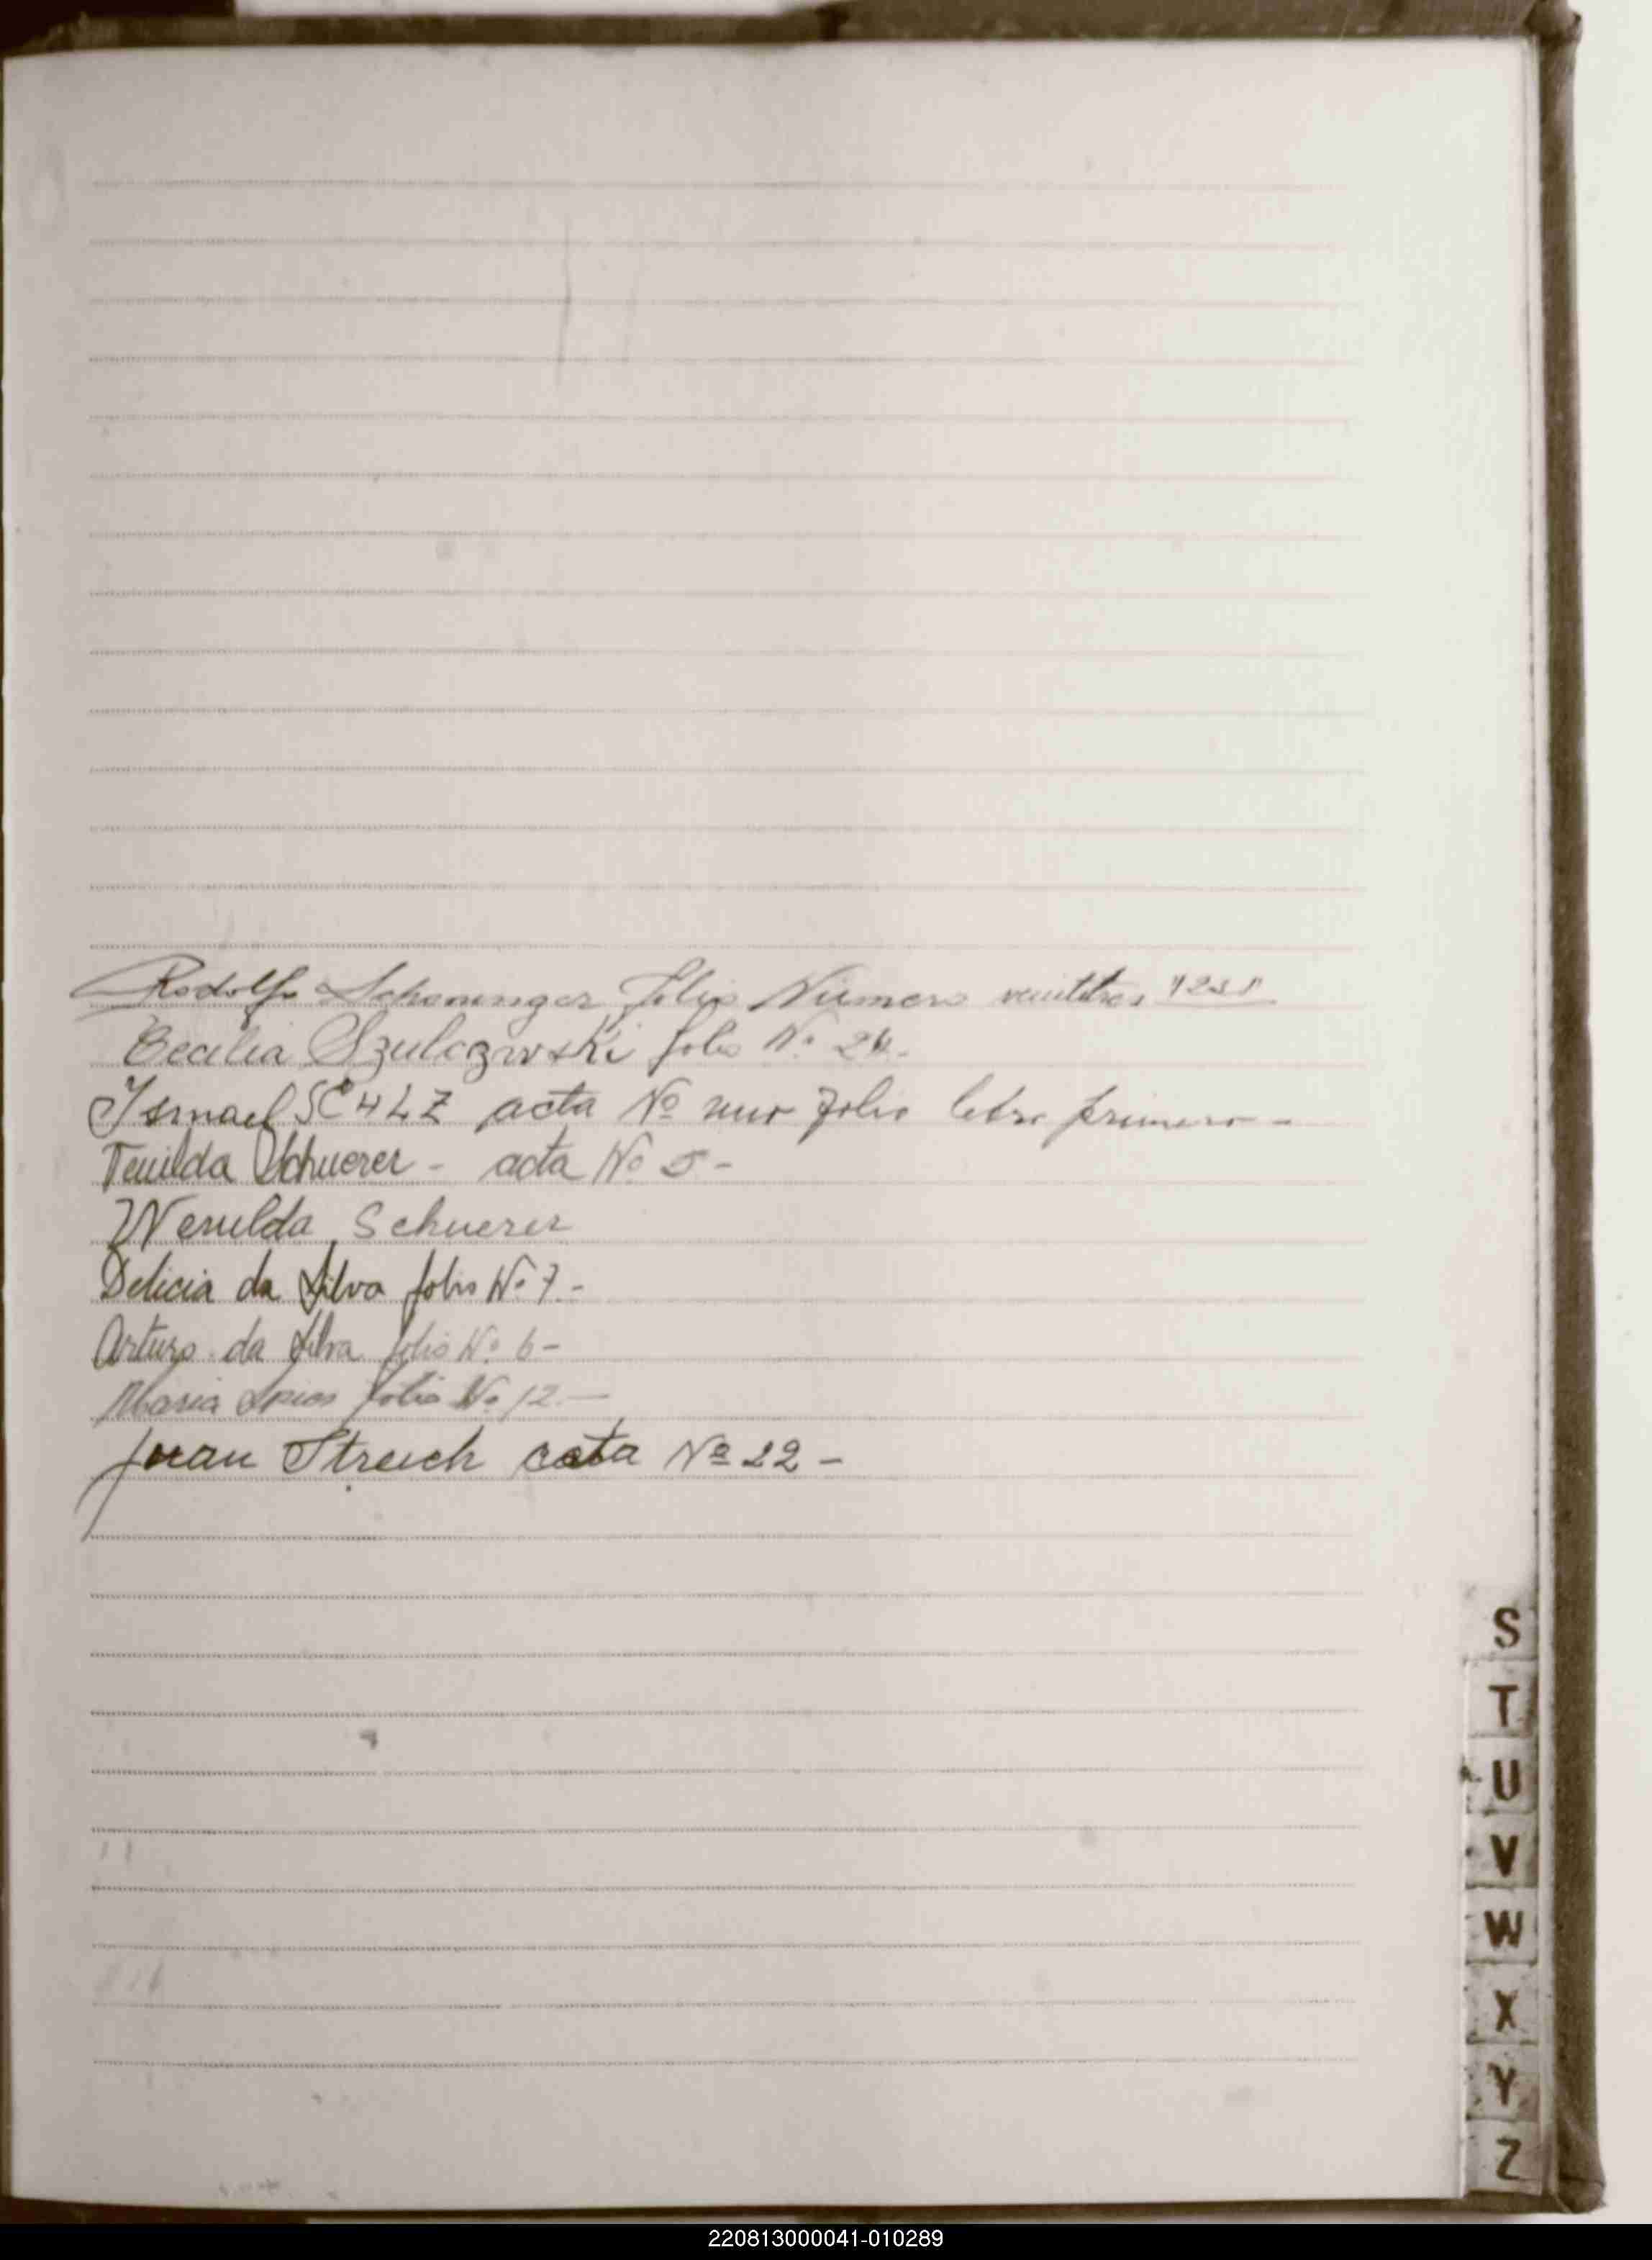 Rodolfo Schoninger folio Número veintitres
Cecilia Szulczwski folio Nº 24.
Ismael SCHLZ acta Nº uno folio letra primero -
Tenilda Schuerer - acta Nº 5 -
Wenilda Schuerer
Delicia da Silva folio Nº 7 -
Arturo da Silva folio Nº 6 -
Maria folio Nº 12 -
Juan Streich acta Nº 22 -
S
T
U
V
W
X
Y
Z
220813000041-010289